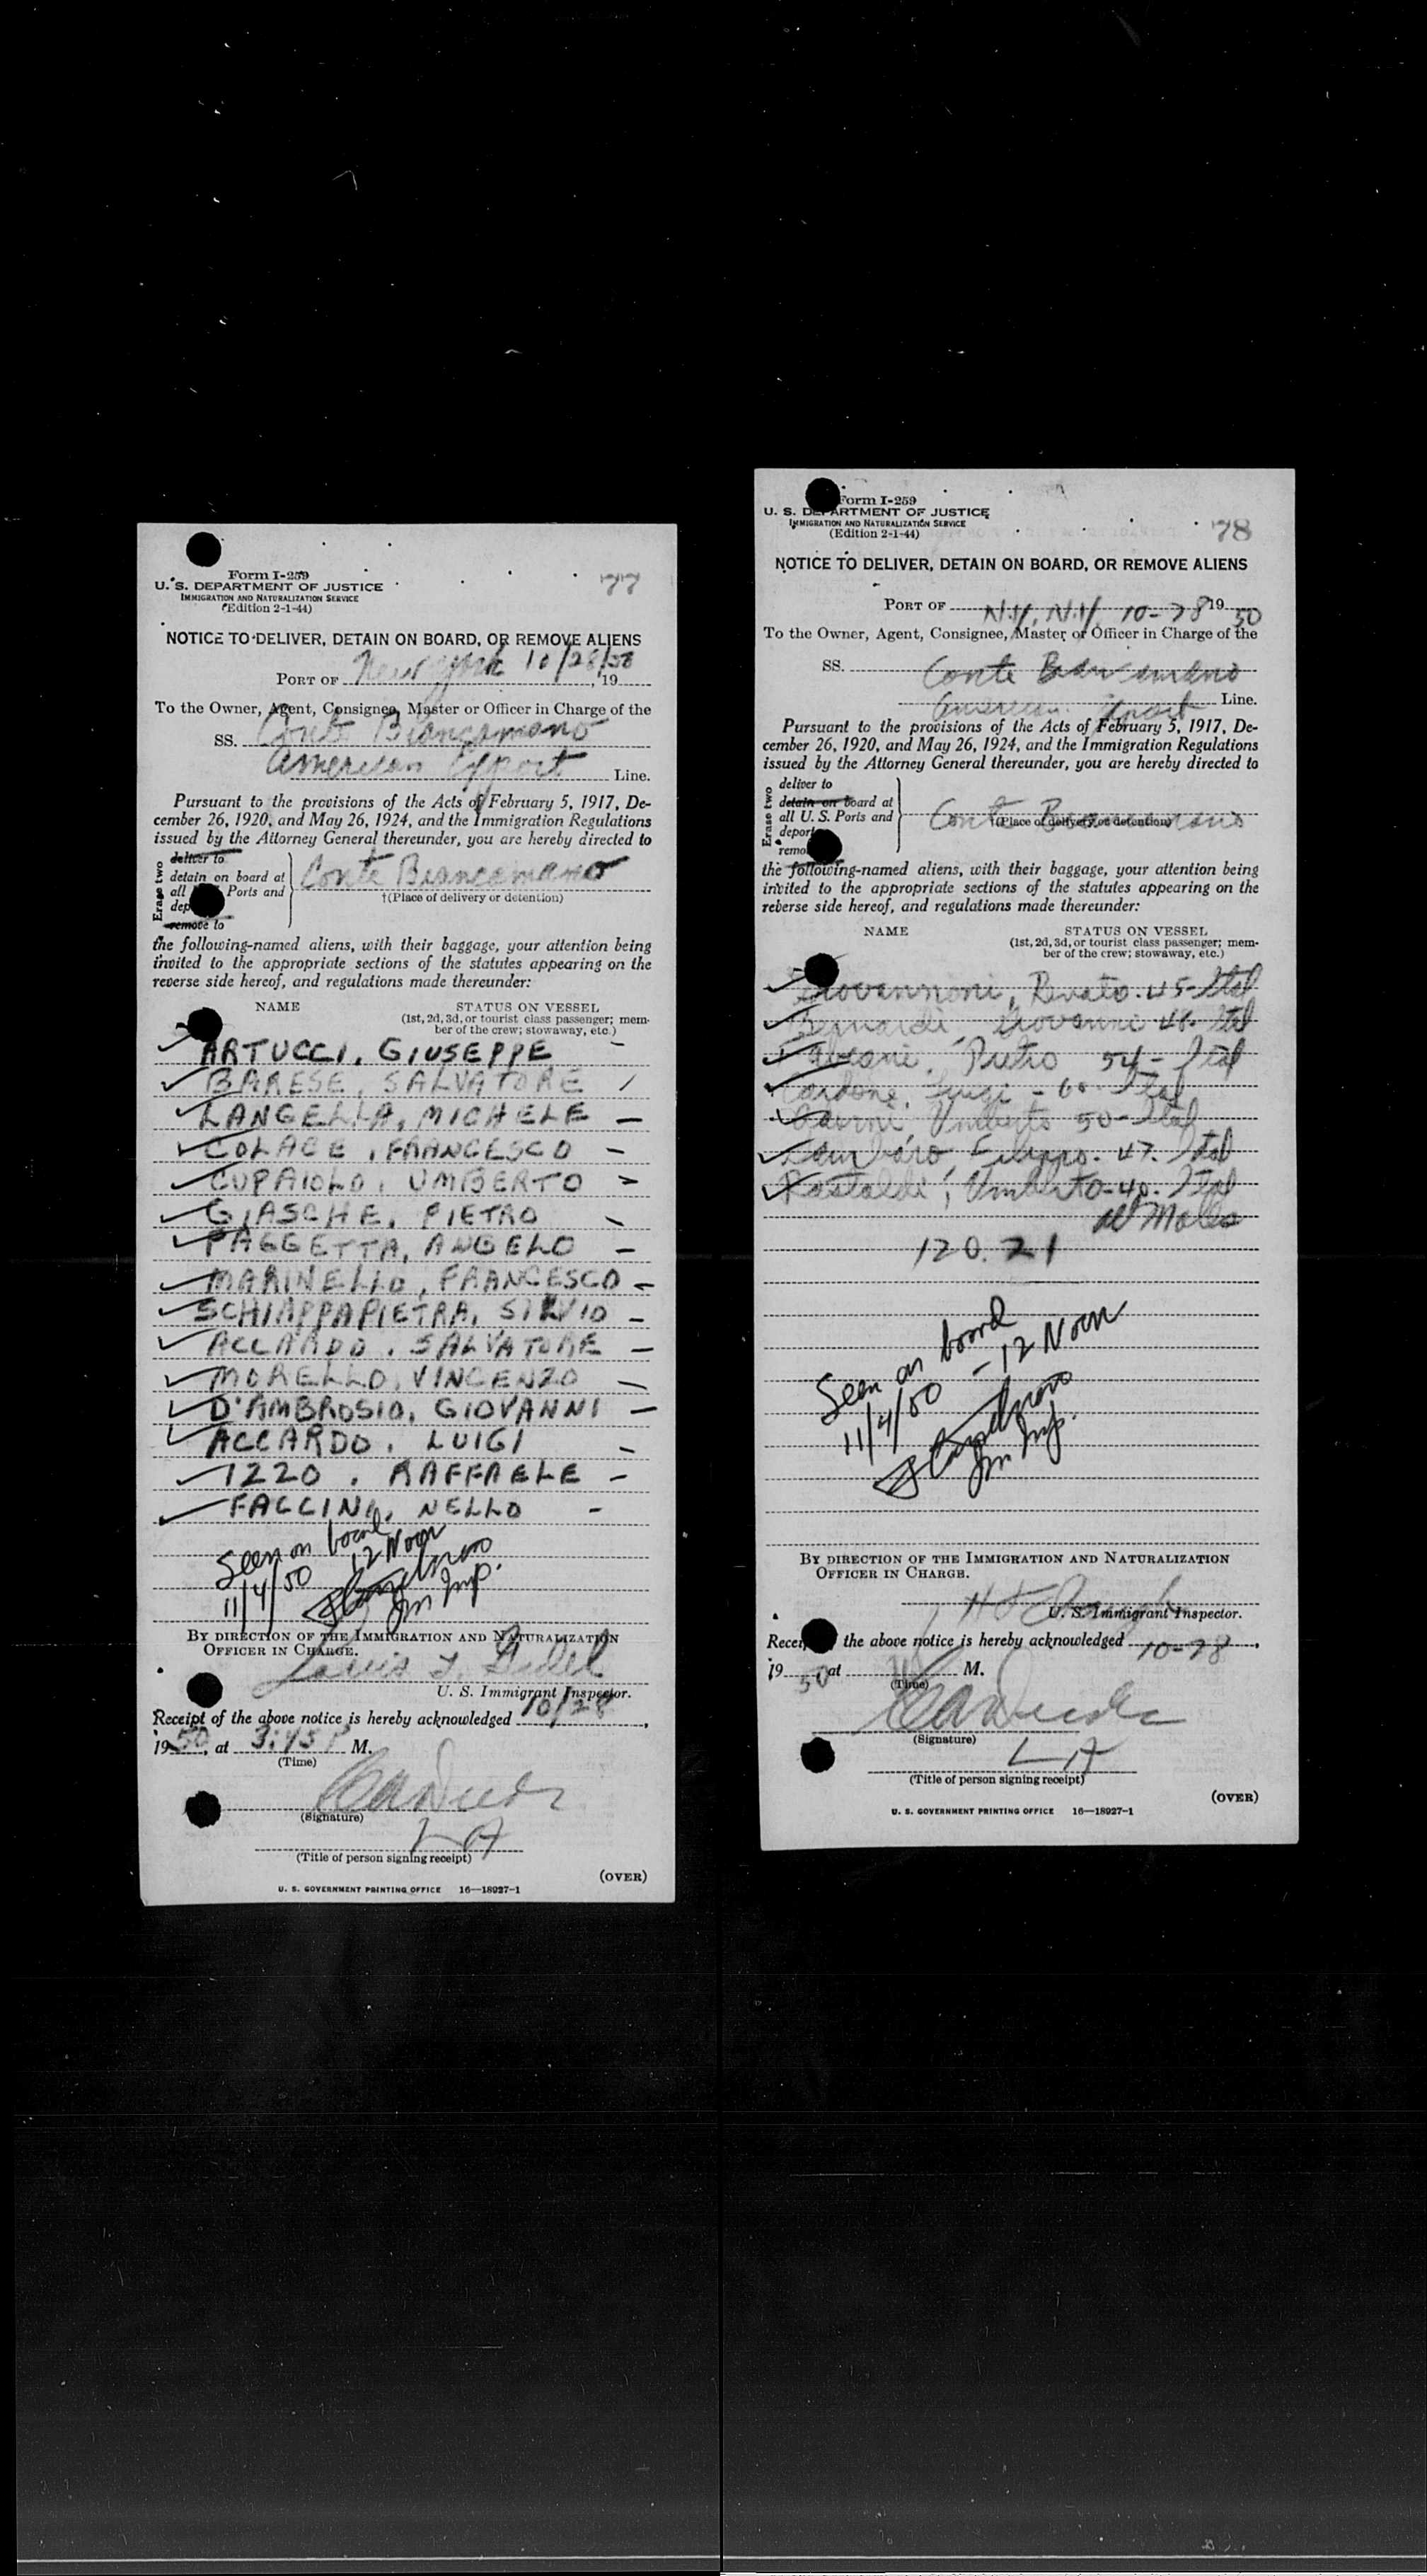 Form I-259
U. S. DEPARTMENT OF JUSTICE
IMMIGRATION AND NATURALIZATION SERVICE
(Edition 2-1-44)
77
NOTICE TO DELIVER, DETAIN ON BOARD, OR REMOVE ALIENS
PORT OF New York 10/28/50, 19
To the Owner, Agent, Consignee, Master or Officer in Charge of the
SS. Conte Biancamano
American Export Line.
Pursuant to the provisions of the Acts of February 5, 1917, De-
cember 26, 1920, and May 26, 1924, and the Immigration Regulations
issued by the Attorney General thereunder, you are hereby directed to
Erase two
deliver to
detain on board at
all Ports and
dep
remove to
Conte Biancamano
†(Place of delivery or detention)
the following-named aliens, with their baggage, your attention being
invited to the appropriate sections of the statutes appearing on the
reverse side hereof, and regulations made thereunder:
NAME STATUS ON VESSEL
(1st, 2d, 3d, or tourist class passenger; mem-
ber of the crew; stowaway, etc.)
ARTUCCI, GIUSEPPE -
BARESE, SALVATORE /
LANGELLA, MICHELE -
COLACE, FRANCESCO -
CUPAIOLO, UMBERTO -
GIASCHE, PIETRO -
PAGGETTA, ANGELO -
MARINELLO, FRANCESCO -
SCHIAPPAPIETRA, SILVIO -
ACCARDO, SALVATORE -
MORELLO, VINCENZO -
D'AMBROSIO, GIOVANNI -
ACCARDO, LUIGI -
IZZO, RAFFAELE -
FACCINI, NELLO -
Seen on board
11/4/50 12 Noon
Im Insp.
BY DIRECTION OF THE IMMIGRATION AND NATURALIZATION
OFFICER IN CHARGE.
Louis
U. S. Immigrant Inspector.
Receipt of the above notice is hereby acknowledged 10/28,
1950, at 3:45 P M.
(Time)
(Signature)
LA
(Title of person signing receipt)
(OVER)
U. S. GOVERNMENT PRINTING OFFICE 16—18927-1
Form I-259
U. S. DEPARTMENT OF JUSTICE
IMMIGRATION AND NATURALIZATION SERVICE
(Edition 2-1-44)
78
NOTICE TO DELIVER, DETAIN ON BOARD, OR REMOVE ALIENS
PORT OF N.Y., N.Y. 10-28 1950
To the Owner, Agent, Consignee, Master or Officer in Charge of the
SS. Conte Biancamano
American Export Line.
Pursuant to the provisions of the Acts of February 5, 1917, De-
cember 26, 1920, and May 26, 1924, and the Immigration Regulations
issued by the Attorney General thereunder, you are hereby directed to
Erase two
deliver to
detain on board at
all U. S. Ports and
deport
remo
Conte Biancamano
†(Place of delivery or detention)
the following-named aliens, with their baggage, your attention being
invited to the appropriate sections of the statutes appearing on the
reverse side hereof, and regulations made thereunder:
NAME STATUS ON VESSEL
(1st, 2d, 3d, or tourist class passenger; mem-
ber of the crew; stowaway, etc.)
Giovannoni, Renato. 45- Ital
Bernardi, Giovanni 48- Ital
Fabiani, Pietro 54- Ital
Cardone, Luigi - 60- Ital
Umberto 50- Ital
Filippo. 47. Ital
Rastaldi, Umberto-40. Ital
all Males
120.21
Seen on board
11/4/50 - 12 Noon
Im Insp.
BY DIRECTION OF THE IMMIGRATION AND NATURALIZATION
OFFICER IN CHARGE.
U. S. Immigrant Inspector.
Receipt the above notice is hereby acknowledged 10-28,
1950 at M.
(Time)
(Signature)
LA
(Title of person signing receipt)
(OVER)
U. S. GOVERNMENT PRINTING OFFICE 16—18927-1